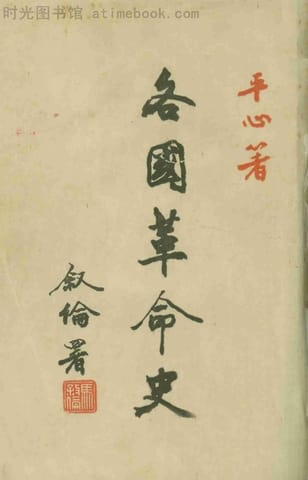 时光图书馆 - www.atimebook.com
平心著
各國革命史
叙倫署